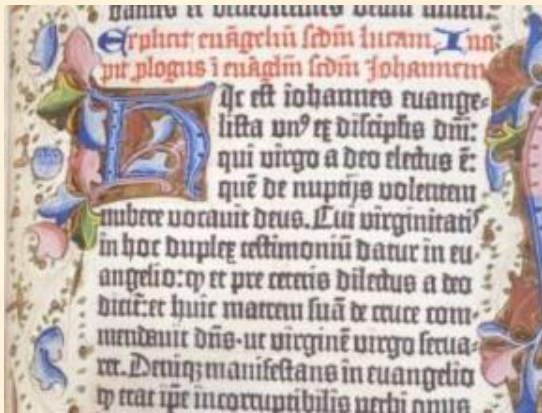 dantes et benedicentes deum amen.
Explicit euāgeliū scdm̄ lucam. Inci
pit ꝓlogus ī euāgliū scdm̄ Johannem
Hic est iohannes euange-
lista unꝰ ex discipl̄is dn̄i:
qui virgo a deo electus ē:
quē de nuptijs volentem
nubere vocavit deus. Cui virginitatꝭ
in hoc duplex testimoniū datur in eu-
angelio: ꝙ et pre ceteris dilectus a deo
dicit̄: et huic matrem suā de cruce com-
mendavit dn̄s. ut virginē virgo serua-
ret. Deniqꝫ manifestans in euangelio
ꝙ erat ip̄e incorruptibilis verbi opus